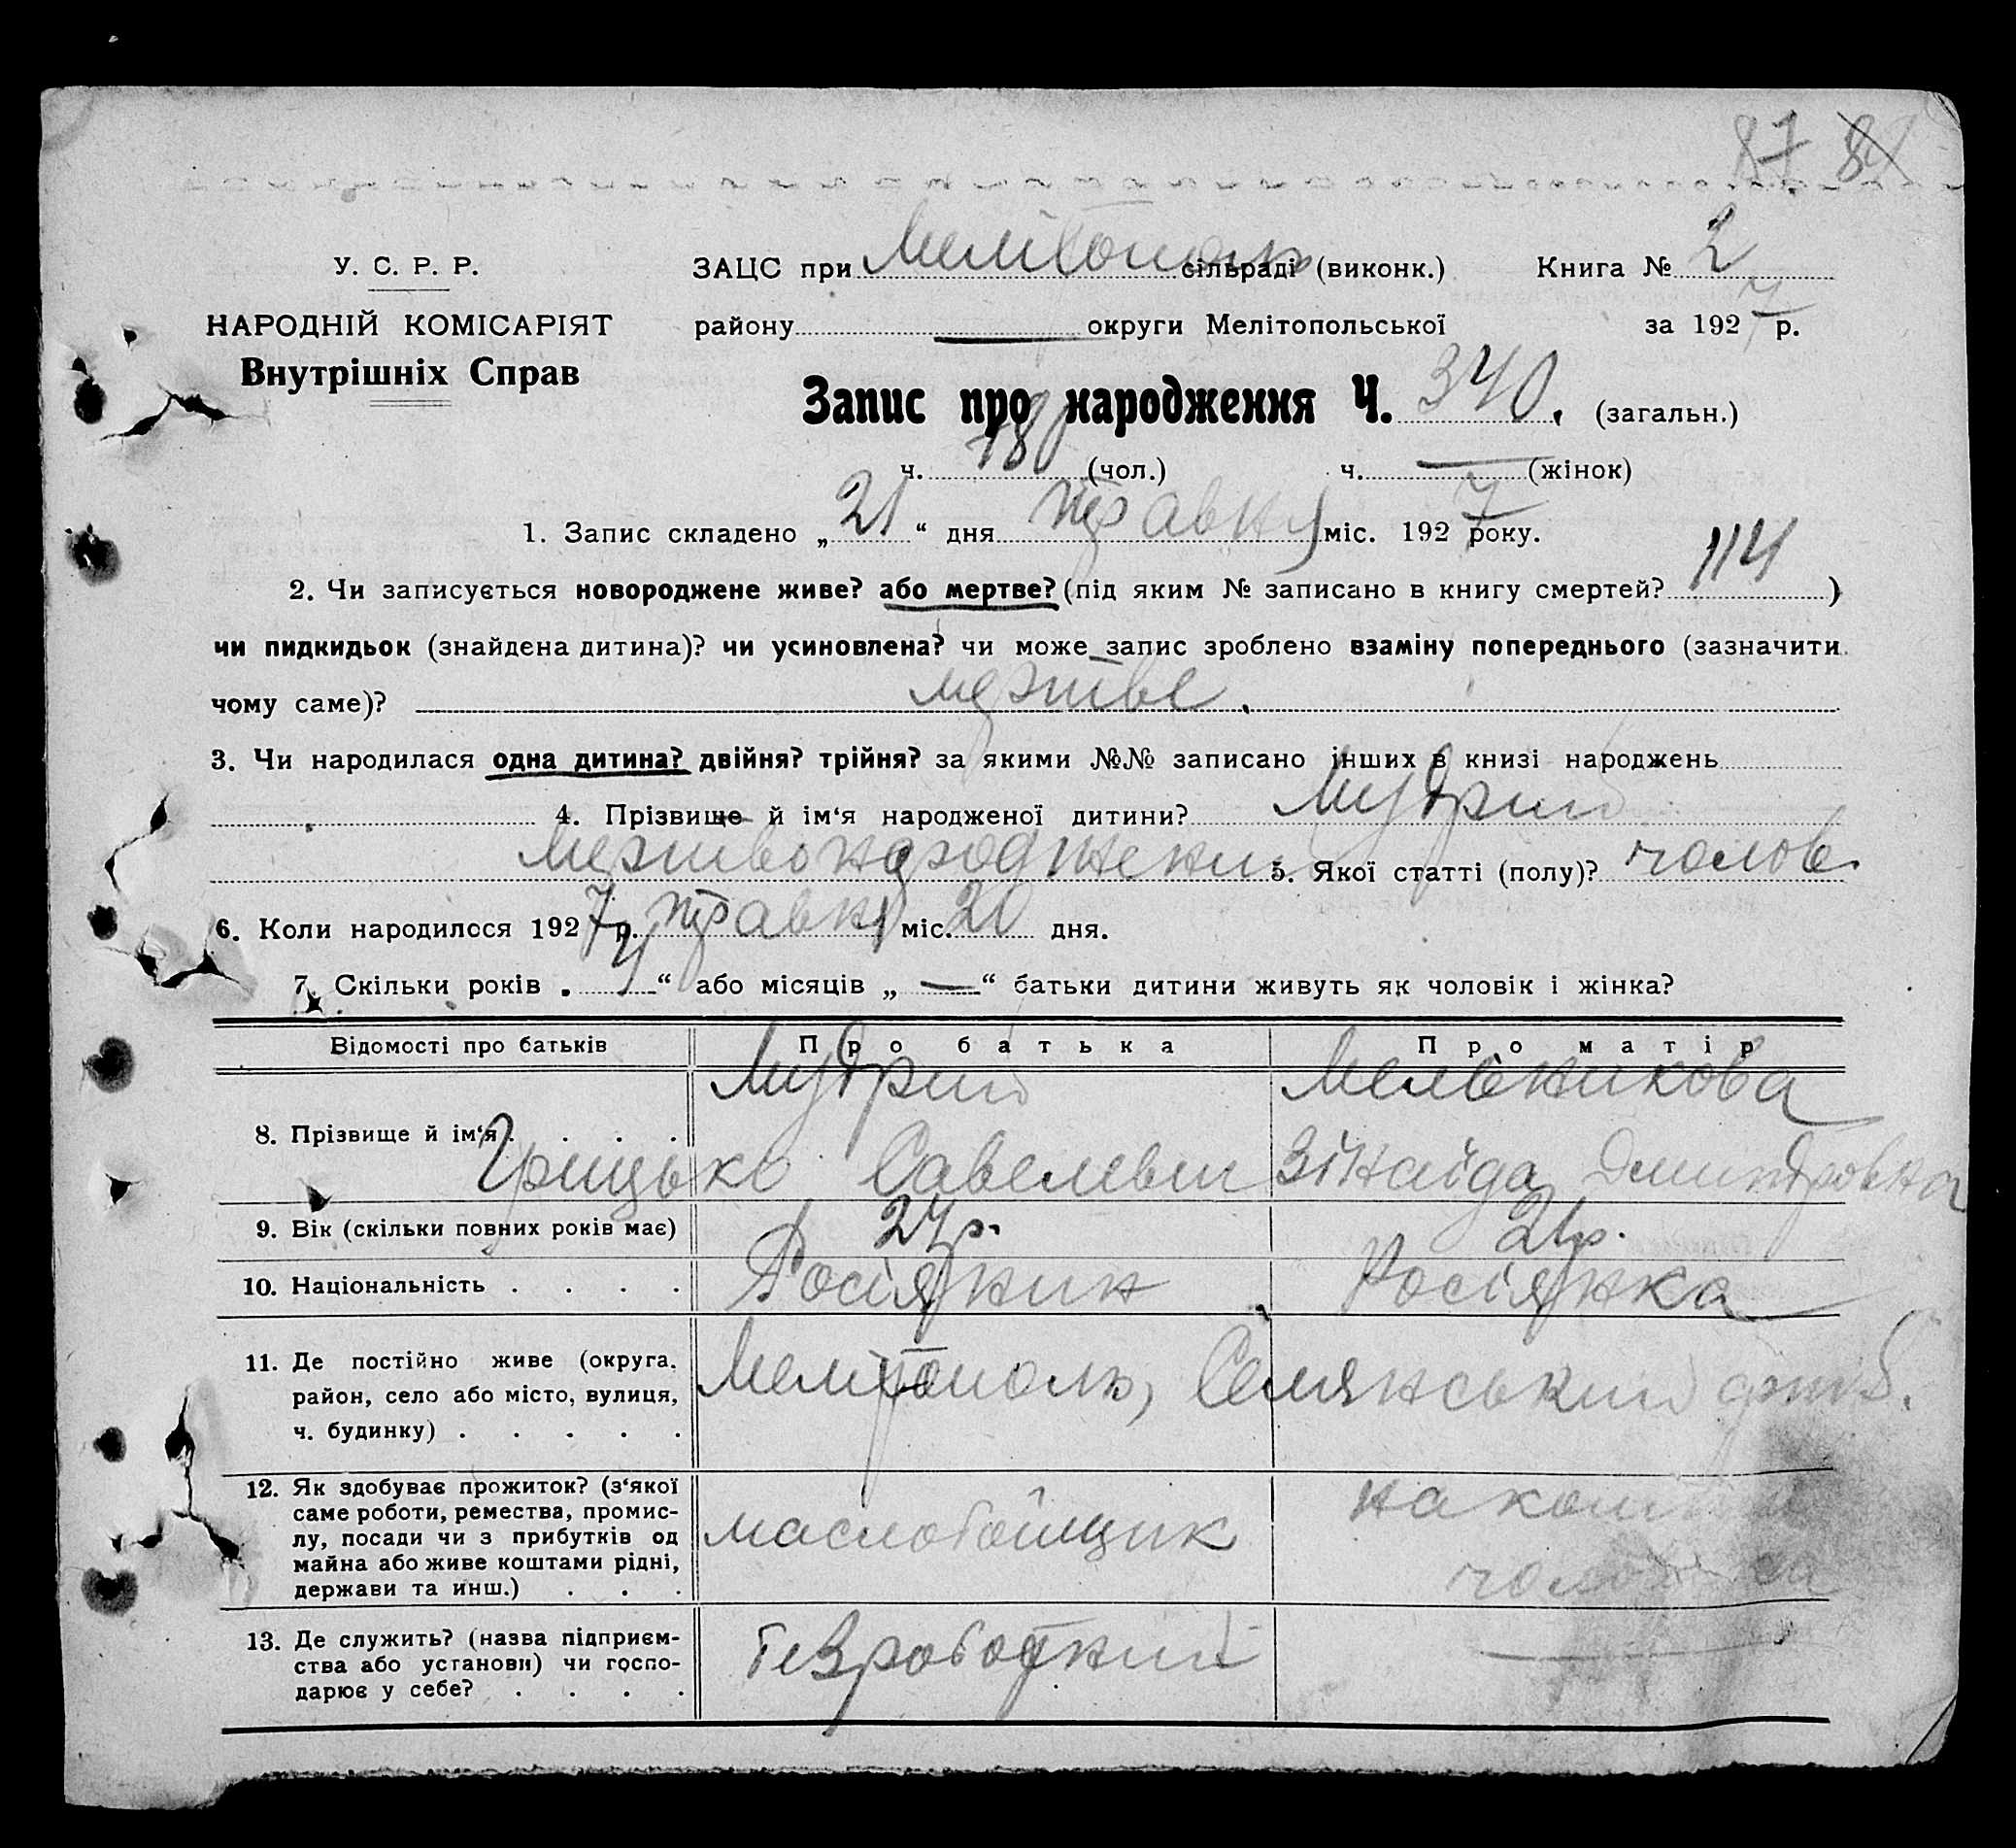 87 84
У. С. Р. Р. ЗАЦС при Мелітополь сільраді (виконк.) Книга № 2
НАРОДНІЙ КОМІСАРІЯТ району — округи Мелітопольської за 1927 р.
Внутрішніх Справ
Запис про народження Ч. 340. (загальн.)
ч. 180 (чол.) ч. — (жінок)
1. Запис складено „21“ дня травня міс. 1927 року.
2. Чи записується новороджене живе? або мертве? (під яким № записано в книгу смертей? 114)
чи пидкидьок (знайдена дитина)? чи усиновлена? чи може запис зроблено взаміну попереднього (зазначити
чому саме)? мертве.
3. Чи народилася одна дитина? двійня? трійня? за якими №№ записано інших в книзі народжень
4. Прізвище й ім‘я народженої дитини? Мудрий
мертвонароджений 5. Якої статті (полу)? чолов.
6. Коли народилося 1927 р. травня міс. 20 дня.
7. Скільки років „4“ або місяців „—“ батьки дитини живуть як чоловік і жінка?
Відомості про батьків Про батька Про матір
Мудрий Мельникова
8. Прізвище й ім‘я . . . .
Грицько Савельев Зінаїда Дмитровна
9. Вік (скільки повних років має) 24 р. 21 р.
10. Національність . . . . Росіянин Росіянка
11. Де постійно живе (округа,
район, село або місто, вулиця, Мелітополь, Семянський
ч. будинку) . . . . .
12. Як здобуває прожиток? (з‘якої
саме роботи, ремества, промис- на кошти
лу, посади чи з прибутків од маслобойщик
майна або живе коштами рідні, чоловіка
держави та инш.) . . .
13. Де служить? (назва підприєм-
ства або установи) чи госпо- безроботний —
дарює у себе? . . . .